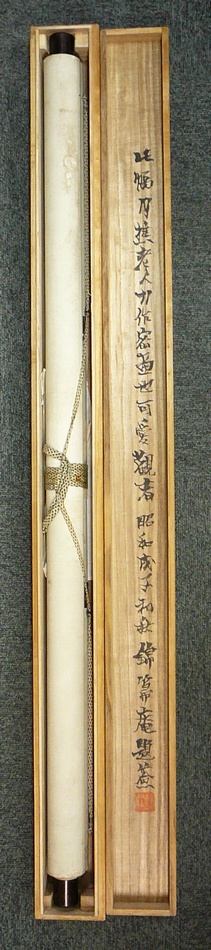 此幅月樵老人力作密画也可愛観者昭和戊子初秋錦篰庵題蓋